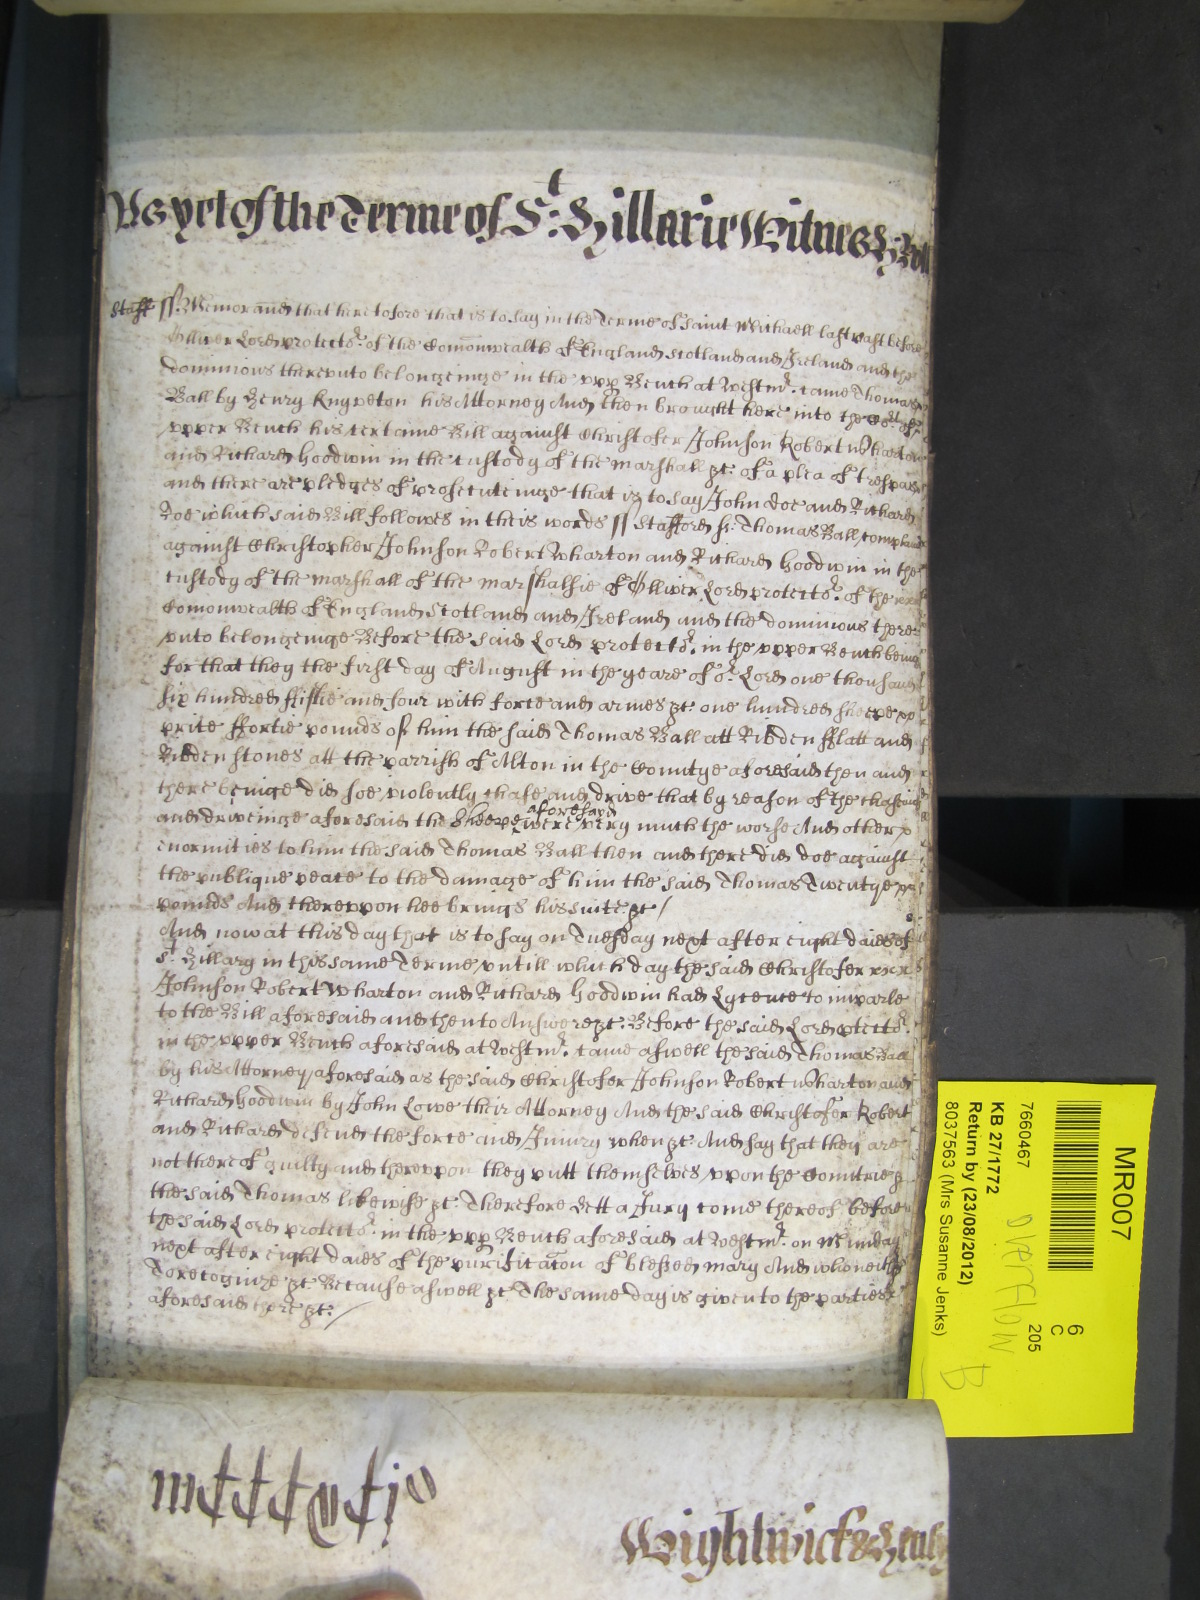 As yet of the Terme of St: Hillarie Witnes H: Rol
Staff ss. Memorand that heretofore that is to say in the Terme of Saint Michaell last past before
Olliver Lord protector. of the Comonwealth of England Scotland and Ireland and the
dominions thereunto belongeinge in the upp Bench at Westmr. came Thomas
Ball by Henry Knypeton his Attorney And then brought here into the Cort of
upper Bench his certaine Bill against Christofer Johnson Robert Wharton
and Richard Hoodwin in the custody of the marshall &c. of a plea of trespas
and there are pledges of prosecuteinge that is to say John doe and Richard
Roe which said Bill followes in theis words ss Stafford ss: Thomas Ball complaines
against Christopher Johnson Robert Wharton and Richard Hoodwin in the
custody of the marshall of the marshalsie of Olliver Lord protector. of the
Comonwealth of England Scotland and Ireland and the dominions there
unto belongeinge Before the said Lord protector. in the upper Bench being
for that they the first day of August in the yeare of or. Lord one thousand
six hundred ffiftie and four with force and armes &c. one hundred sheepe
price ffortie pounds of him the said Thomas Ball att Ribden fflatt and
Ribden stones att the parrish of Alton in the Countye aforesaid then and
there beinge did soe violently chase and drive that by reason of the chaseing
and driveinge aforesaid the sheepe aforesayd were very much the worse And other
enormities to him the said Thomas Ball then and there did doe against
the publique peace to the damage of him the said Thomas Twentye
pounds And thereupon hee brings his suite &c /
And now at this day that is to say on Tuesday next after eight daies of
St. Hillary in this same Terme untill which day the said Christofer
Johnson Robert Wharton and Richard Hoodwin had Lycence to imparle
to the Bill aforesaid and then to Answere &c. Before the said Lord ptector.
in the upper Bench aforesaid at Westmr. came aswell the said Thomas Ball
by his Attorney aforesaid as the said Christofer Johnson Robert Wharton and
Richard Hoodwin by John Lowe their Attorney And the said Christofer Robert
and Richard defend the force and Iniury when &c And say that they are
not thereof guilty and thereupon they putt themselves upon the Countrie &
the said Thomas likewise &c. Therefore Lett a Jury come thereof before
the said Lord protector. in the upp Bench aforesaid at Westmr. on Munday
next after eight daies of the purificacon of blessed mary And who neither
To recognize &c. Because aswell &c The same day is given to the parties
aforesaid there &c. /
Wightwick & Henly
MR007
6
C
205
7660467
KB 27/1772
Return by (23/08/2012)
8037563 (Mrs Susanne Jenks)
OVERFLOW
B